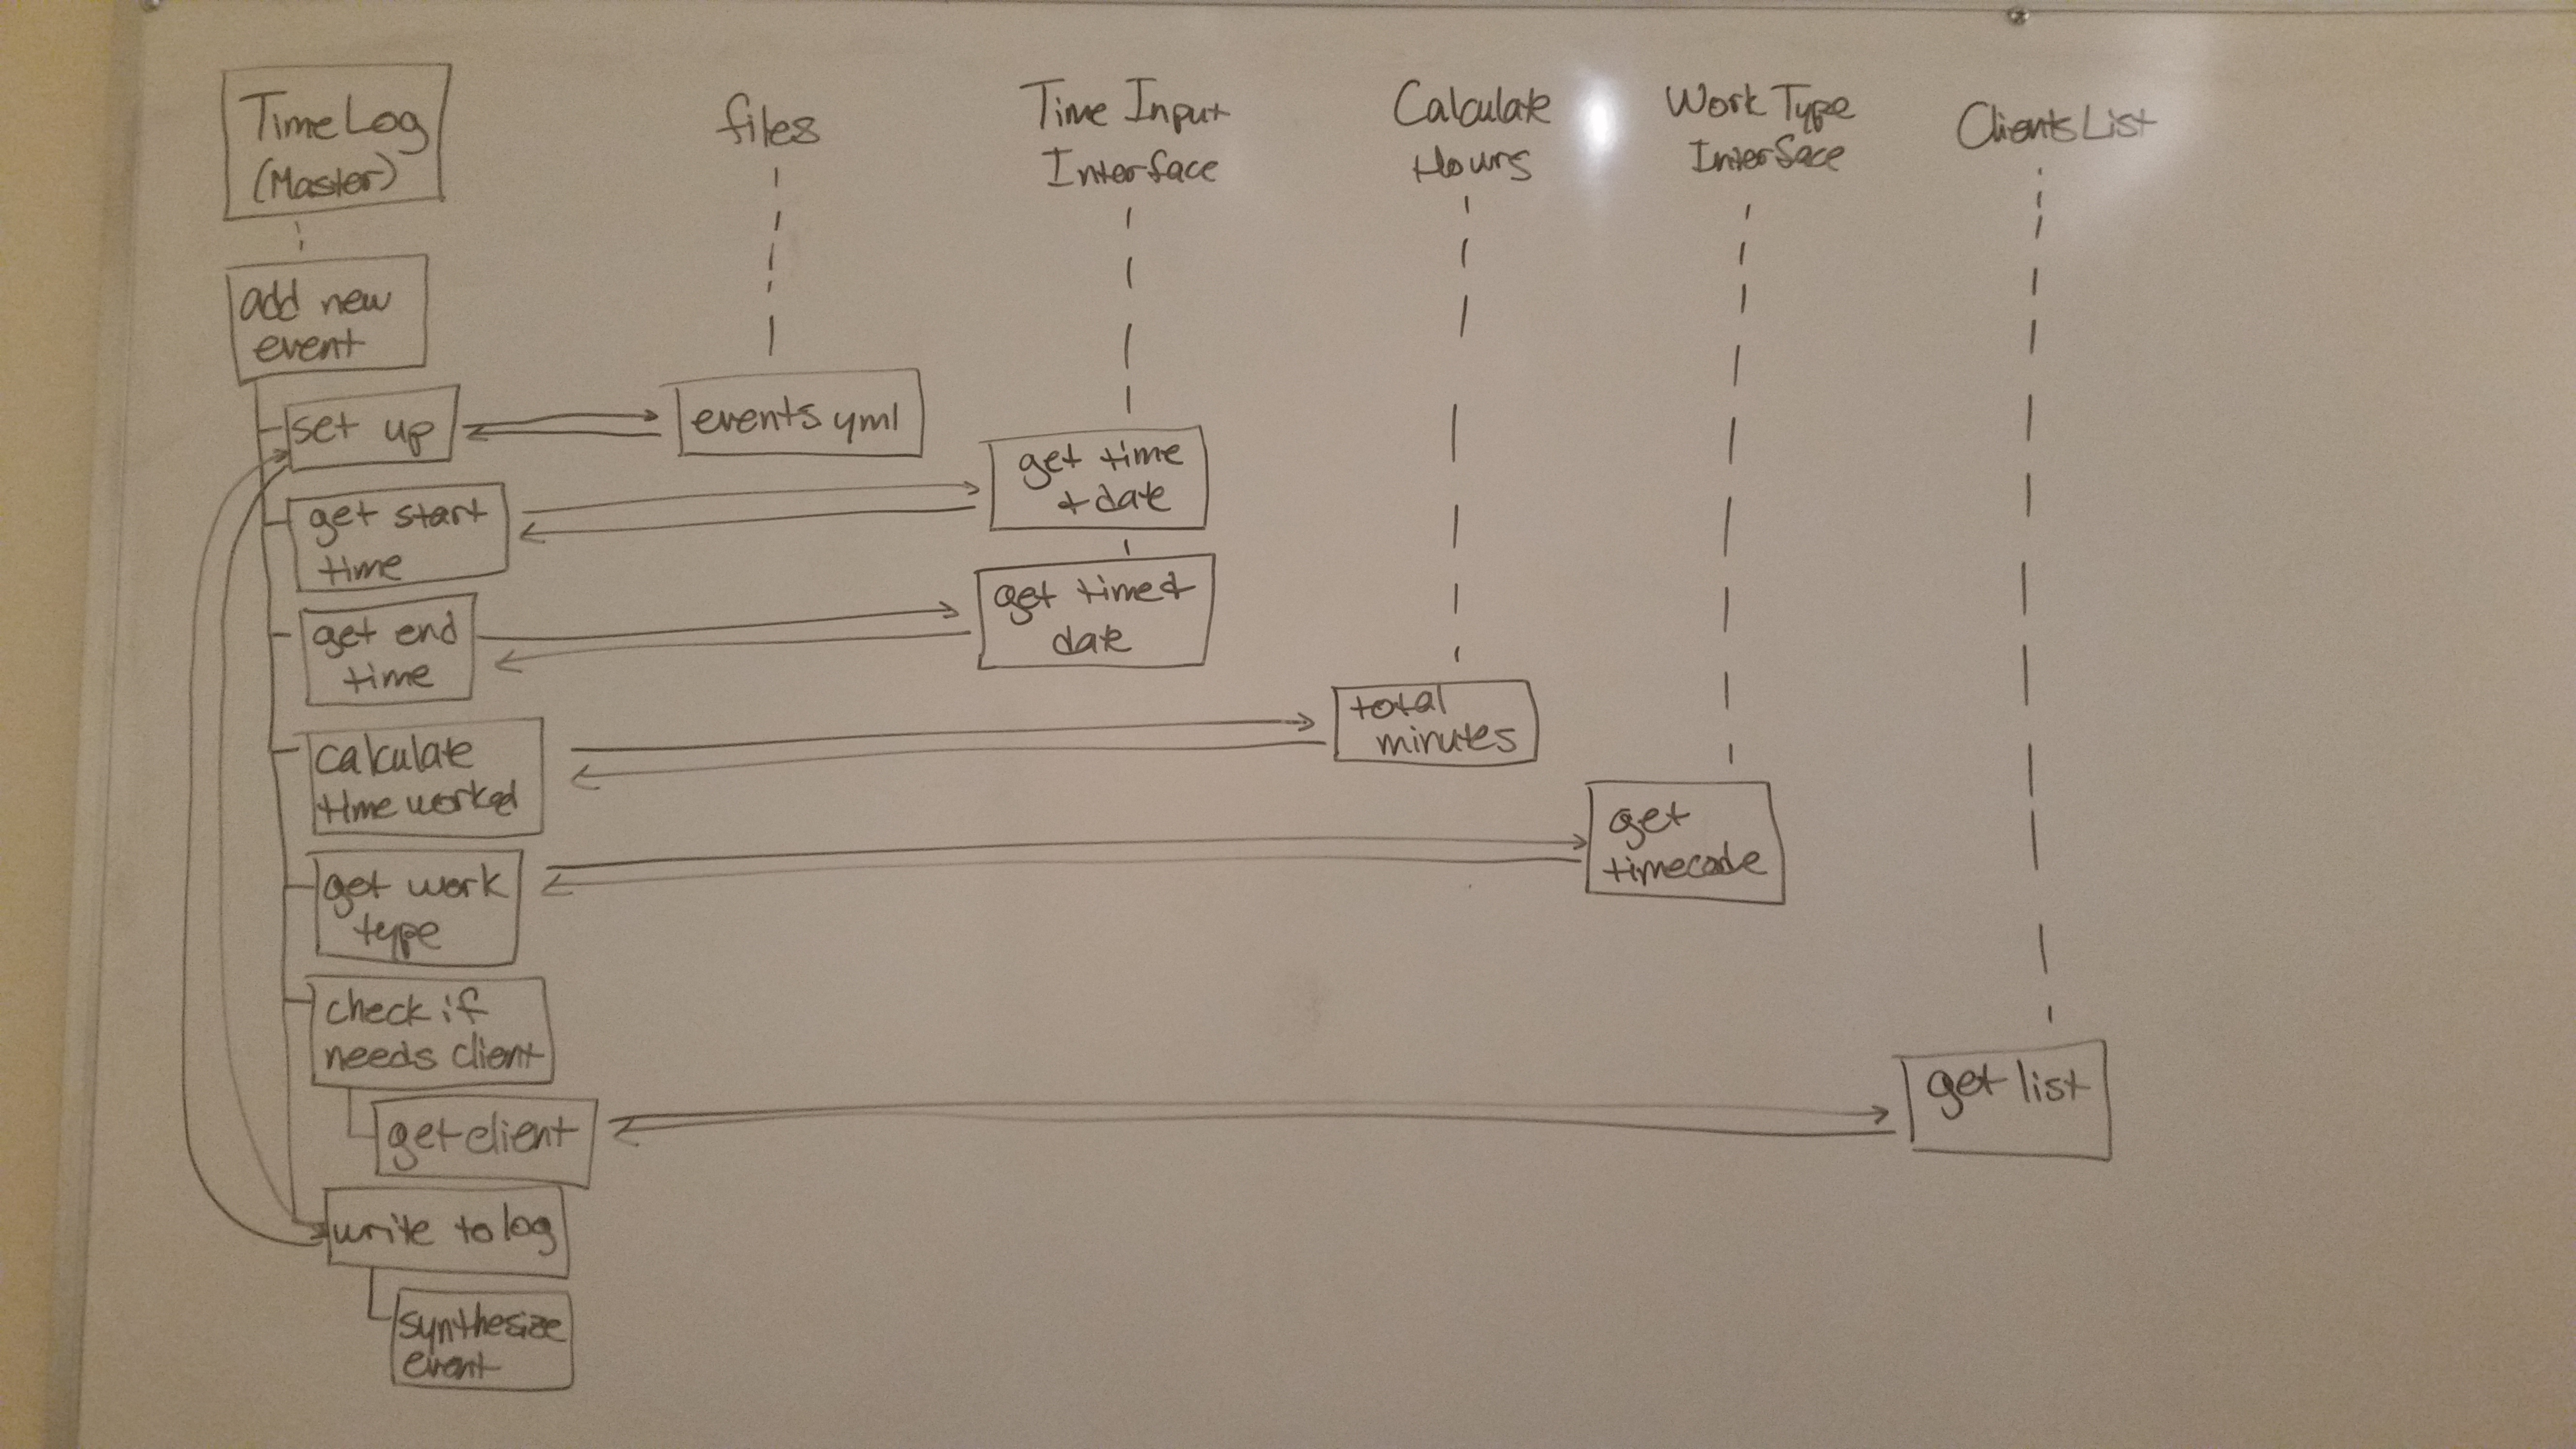 TimeLog
(Master)
files
Time Input
Interface
Calculate
Hours
Work Type
Interface
ClientsList
add new
event
set up
events yml
get start
time
get time
+ date
get end
time
get time +
date
calculate
time worked
total
minutes
get work
type
get
timecode
check if
needs client
get client
get list
write to log
synthesize
event